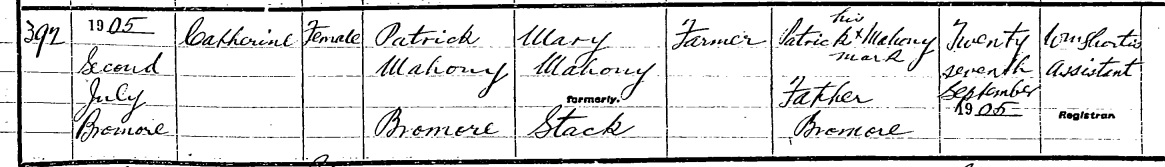 392
1905
Second
July
Bromore
Catherine
Female
Patrick
Mahony
Bromore
Mary
Mahony
formerly.
Stack
Farmer
his
Patrick x Mahony
mark
Father
Bromore
Twenty
seventh
September
1905
Assistant
Registrar.